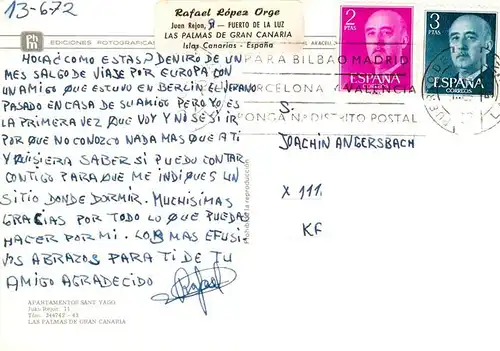 13-6-72
Rafael López Orge
Juan Rejon, 9 - PUERTO DE LA LUZ
LAS PALMAS DE GRAN CANARIA
Islas Canarias - España
EDICIONES FOTOGRAFICAS
HOLA ¿COMO ESTAS? DENTRO DE UN
MES SALGO DE VIAJE POR EUROPA CON
UN AMIGO QUE ESTUVO EN BERLIN EL VERANO
PASADO EN CASA DE SU AMIGO PERO YO ES
LA PRIMERA VEZ QUE VOY Y NO SE SI IR
POR QUE NO CONOZCO NADA MAS QUE A TI
Y QUISIERA SABER SI PUEDO CONTAR
CONTIGO PARA QUE ME INDIQUES UN
SITIO DONDE DORMIR. MUCHISIMAS
GRACIAS POR TODO LO QUE PUEDAS
HACER POR MI. LOS MAS EFUSI
VOS ABRAZOS PARA TI DE TU
AMIGO AGRADECIDO
Rafael
APARTAMENTOS SANT YAGO
Juan Rejón, 11
Tfno. 244742 - 43
LAS PALMAS DE GRAN CANARIA
Prohibida la reproducción
2
PTAS
ESPAÑA
3
PTAS
ESPAÑA
CORREOS
PARA BILBAO MADRID
BARCELONA VALENCIA
PONGA Nº DISTRITO POSTAL
S:
JOACHIN ANGERSBACH
X 111
KF